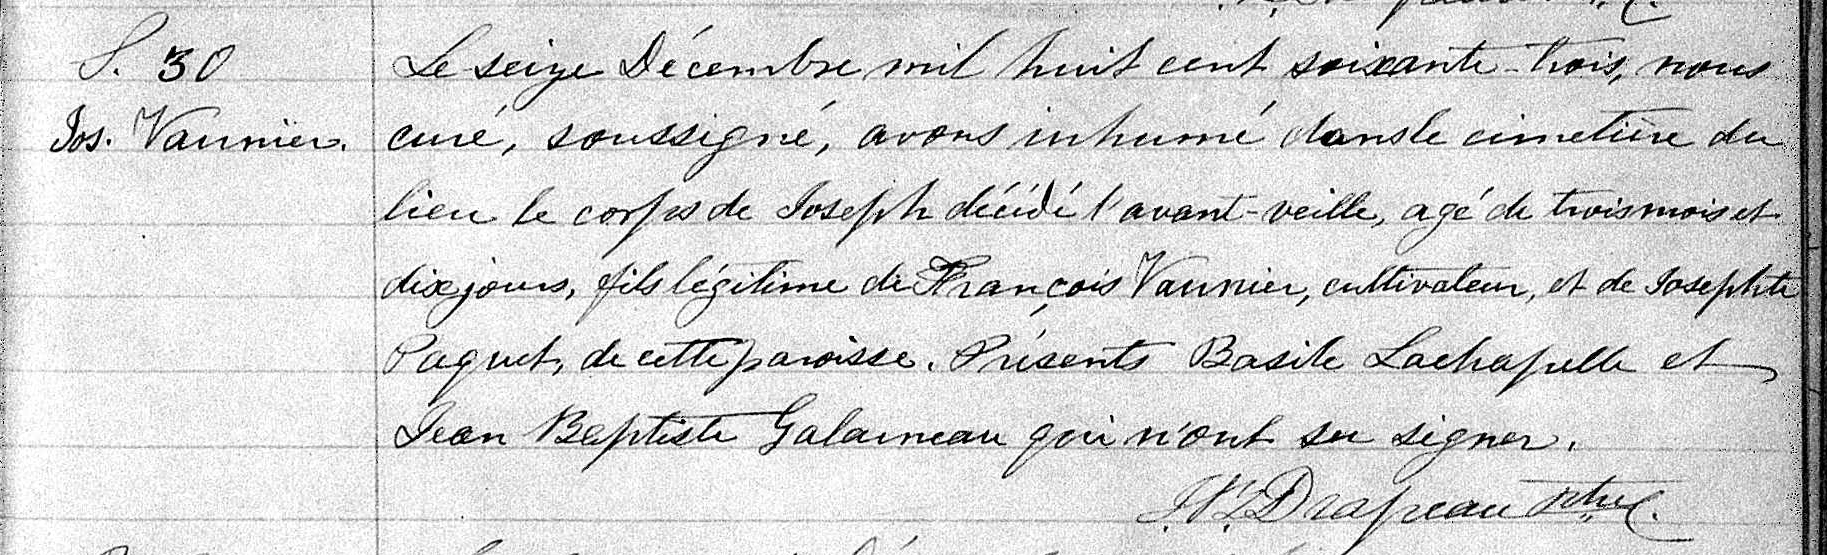 S. 30
Jos. Vannier.
Le seize Décembre mil huit cent soixante-trois, nous
curé, soussigné, avons inhumé dans le cimetière du
lieu le corps de Joseph décédé l'avant-veille, agé de trois mois et
dix jours, fils légitime de François Vannier, cultivateur, et de Josephte
Paquet, de cette paroisse. Présents Basile Lachapelle et
Jean Baptiste Galarneau qui n'ont su signer.
Drapeau Ptre C.